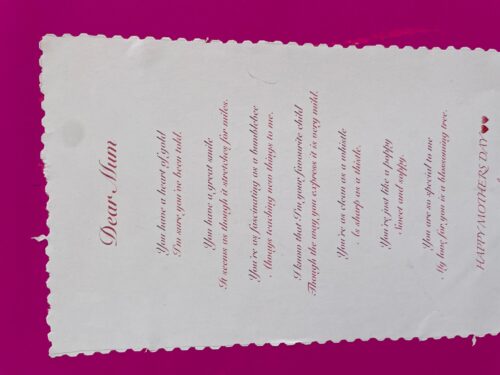 Dear Mum
You have a heart of gold
I'm sure you've been told.
You have a great smile
It seems as though it stretches for miles.
You're as fascinating as a bumblebee
Always teaching new things to me.
I know that I'm your favourite child
Though the way you express it is very mild.
You're as clean as a whistle
As sharp as a thistle.
You're just like a puppy
Sweet and sappy.
You are so special to me
My love for you is a blossoming tree.
HAPPY MOTHERS DAY